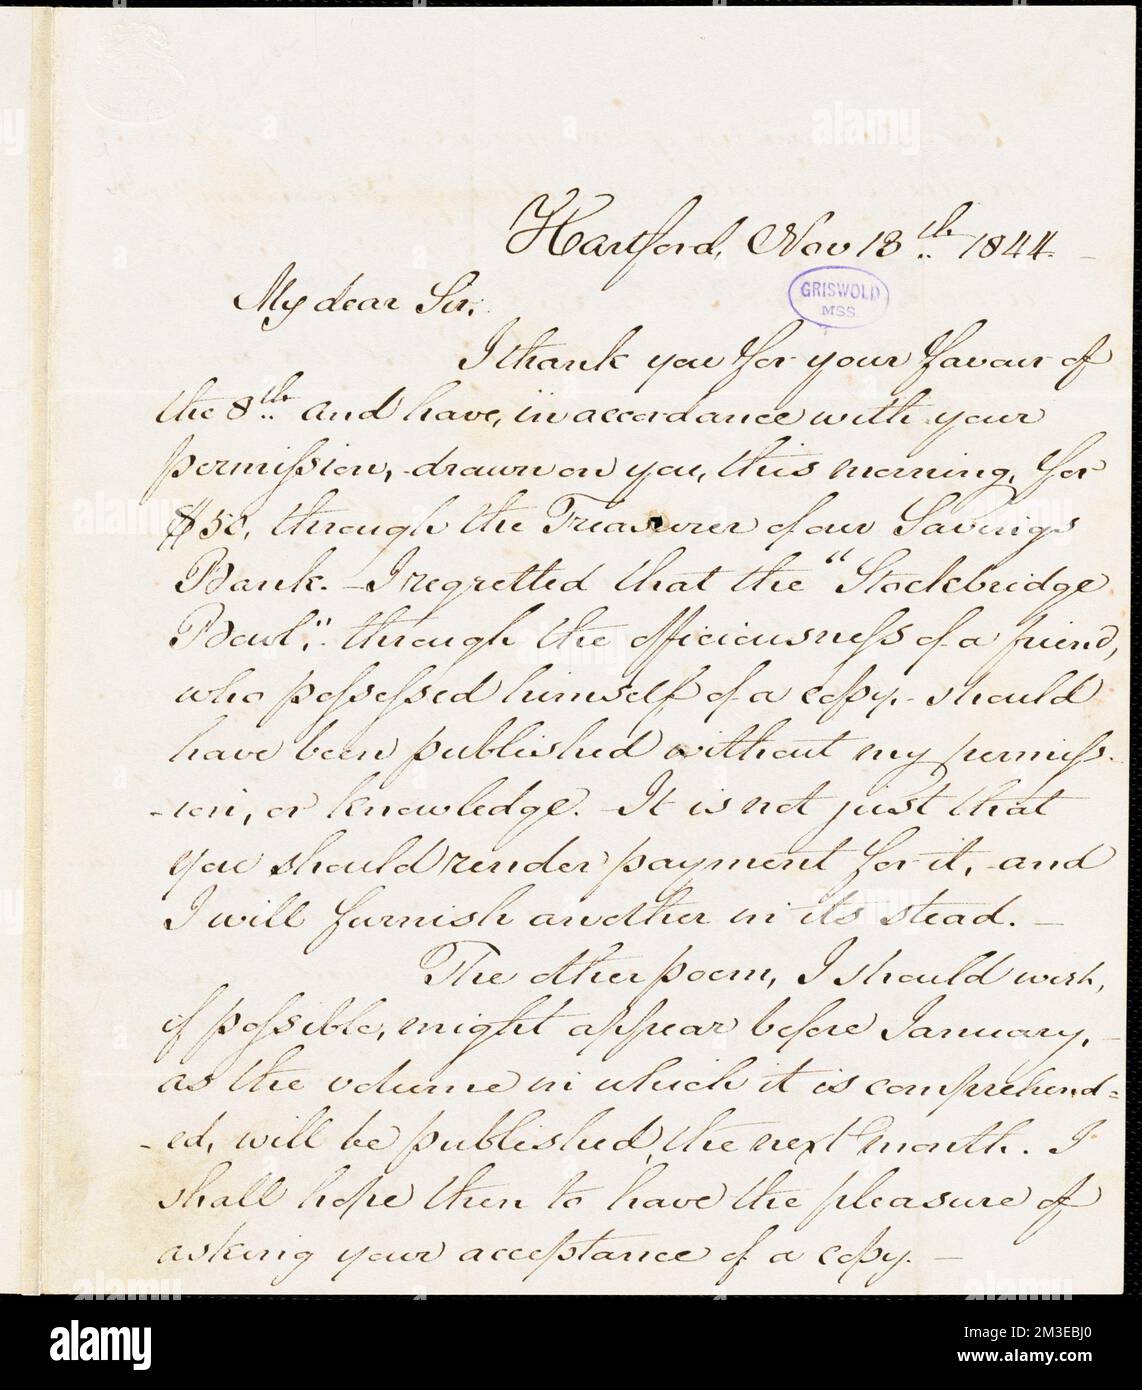 Hartford, Nov 13th. 1844.
My dear Sir,
GRISWOLD
MSS.
I thank you for your favour of
the 8th. and have, in accordance with your
permission, drawn on you, this morning, for
$50, through the Treasurer of our Savings
Bank. - I regretted that the "Stockbridge
Bowl," through the officiousness of a friend,
who possessed himself of a copy - should
have been published without my permiss-
-ion, or knowledge. - It is not just that
you should render payment for it, - and
I will furnish another in its stead. -
The other poem, I should wish,
if possible, might appear before January, -
as the volume in which it is comprehend=
-ed, will be published, the next month. I
shall hope then to have the pleasure of
asking your acceptance of a copy. -
alamy
Image ID: 2M3EBJ0
www.alamy.com